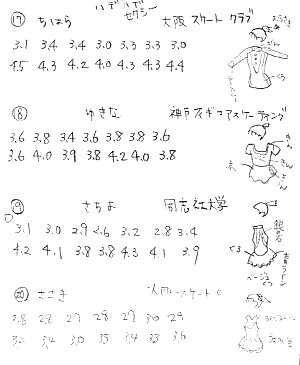 ⑰ ちはら ハデハデ セクシー 大阪スケートクラブ
3.1 3.4 3.4 3.0 3.3 3.3 3.0
4.5 4.3 4.2 4.0 4.3 4.3 4.4
くろ
⑱ ゆきな 神戸フィギュアスケーティング
3.6 3.8 3.4 3.6 3.8 3.8 3.6
3.6 4.0 3.9 3.8 4.2 4.0 3.8
きん
⑲ さちよ 同志社大学
3.1 3.0 2.9 2.6 3.2 2.8 3.4
4.2 4.1 3.8 3.8 4.3 4.1 3.9
くろ
青ライン
ベージュ
⑳
2.8 2.8 2.7 2.8 2.7 3.0 2.9
3.2 3.4 3.0 3.5 3.4 3.3 3.6